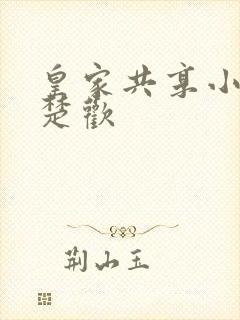 皇家共享小
楚歡
荆山玉